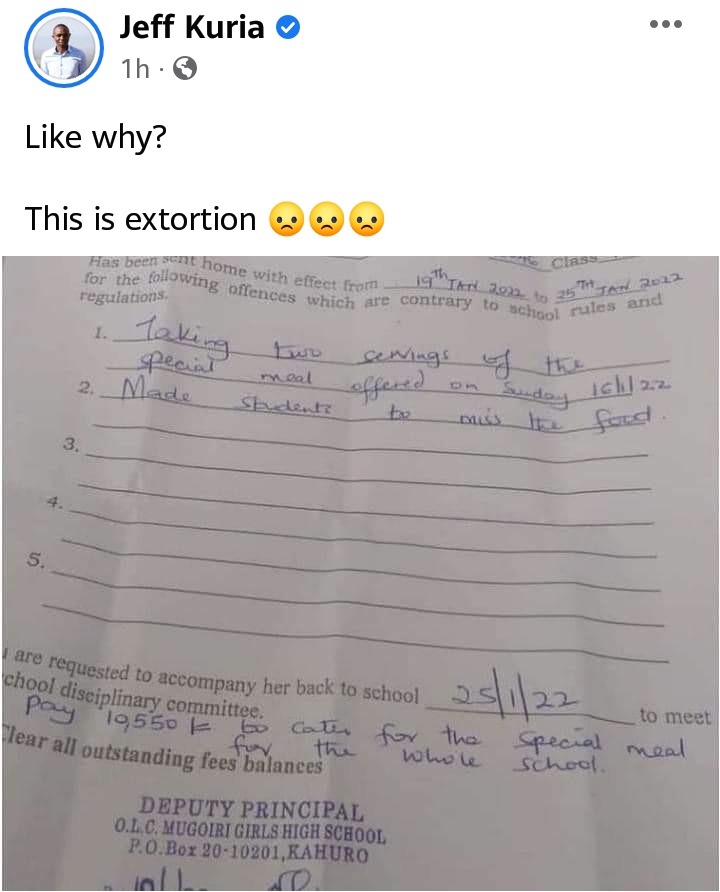 Jeff Kuria
1h
Like why?
This is extortion 😞😞😞
Class
Has been sent home with effect from 19th JAN 2022 to 25TH JAN 2022
for the following offences which are contrary to school rules and
regulations.
1. Taking two servings of the
special meal offered on Sunday 16/1/22
2. Made students to miss the food.
3.
4.
5.
are requested to accompany her back to school 25/1/22 to meet
chool disciplinary committee.
Pay 19,550 k to cater for the special meal
for the whole school.
Clear all outstanding fees balances
DEPUTY PRINCIPAL
O.L.C. MUGOIRI GIRLS HIGH SCHOOL
P.O.Box 20-10201,KAHURO